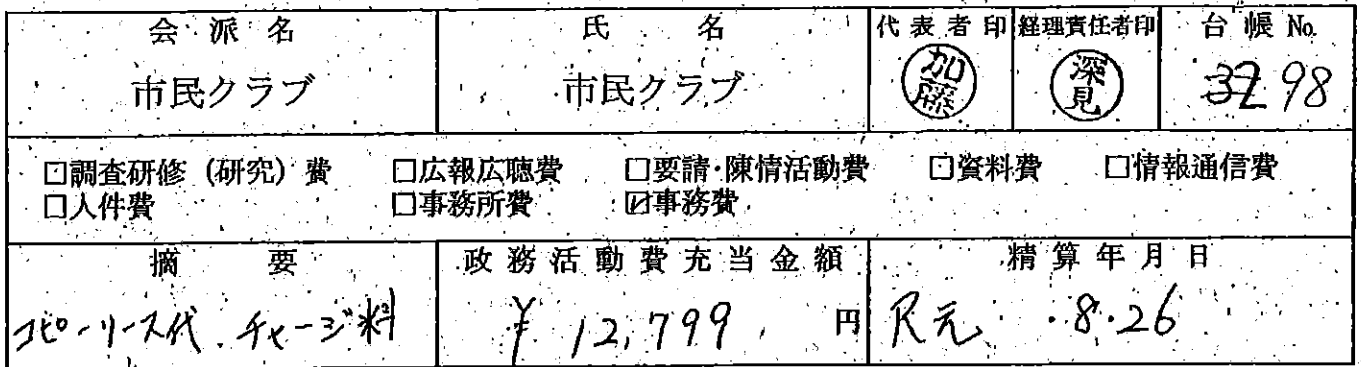 会派名 氏名 代表者印 経理責任者印 台帳No.
市民クラブ 市民クラブ 加藤 深見 98
□調査研修（研究）費 □広報広聴費 □要請・陳情活動費 □資料費 □情報通信費
□人件費 □事務所費 ☑事務費
摘要 政務活動費充当金額 精算年月日
コピーリース代 チャージ料 ¥12,799 円 R元.8.26